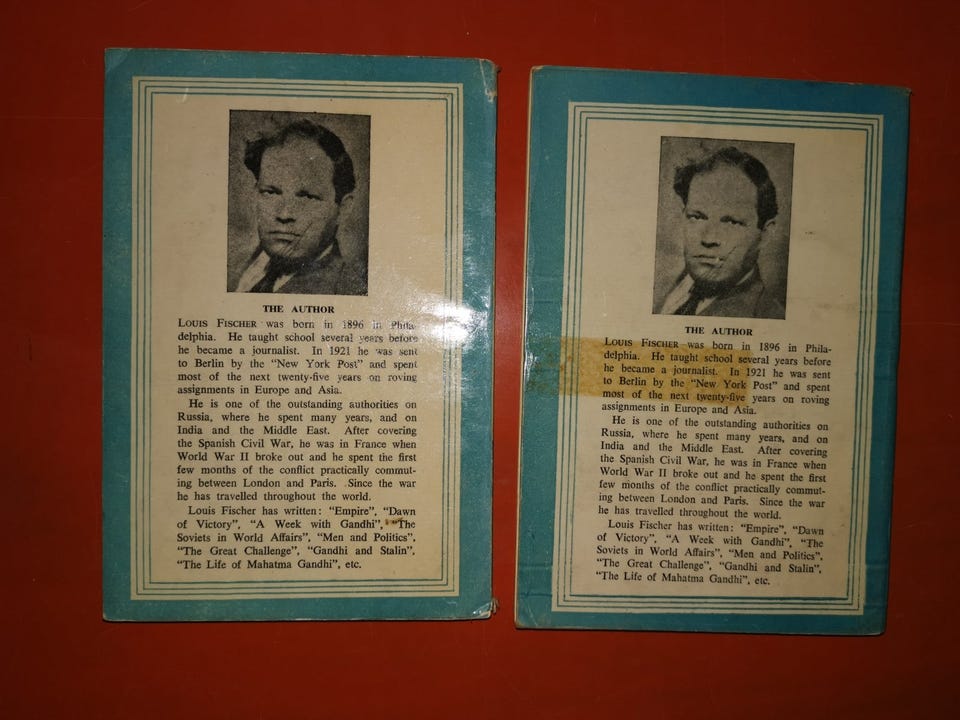 THE AUTHOR
LOUIS FISCHER was born in 1896 in Phila-
delphia. He taught school several years before
he became a journalist. In 1921 he was sent
to Berlin by the "New York Post" and spent
most of the next twenty-five years on roving
assignments in Europe and Asia.
He is one of the outstanding authorities on
Russia, where he spent many years, and on
India and the Middle East. After covering
the Spanish Civil War, he was in France when
World War II broke out and he spent the first
few months of the conflict practically commut-
ing between London and Paris. Since the war
he has travelled throughout the world.
Louis Fischer has written: "Empire", "Dawn
of Victory", "A Week with Gandhi", "The
Soviets in World Affairs", "Men and Politics",
"The Great Challenge", "Gandhi and Stalin",
"The Life of Mahatma Gandhi", etc.
THE AUTHOR
LOUIS FISCHER was born in 1896 in Phila-
delphia. He taught school several years before
he became a journalist. In 1921 he was sent
to Berlin by the "New York Post" and spent
most of the next twenty-five years on roving
assignments in Europe and Asia.
He is one of the outstanding authorities on
Russia, where he spent many years, and on
India and the Middle East. After covering
the Spanish Civil War, he was in France when
World War II broke out and he spent the first
few months of the conflict practically commut-
ing between London and Paris. Since the war
he has travelled throughout the world.
Louis Fischer has written: "Empire", "Dawn
of Victory", "A Week with Gandhi", "The
Soviets in World Affairs", "Men and Politics",
"The Great Challenge", "Gandhi and Stalin",
"The Life of Mahatma Gandhi", etc.